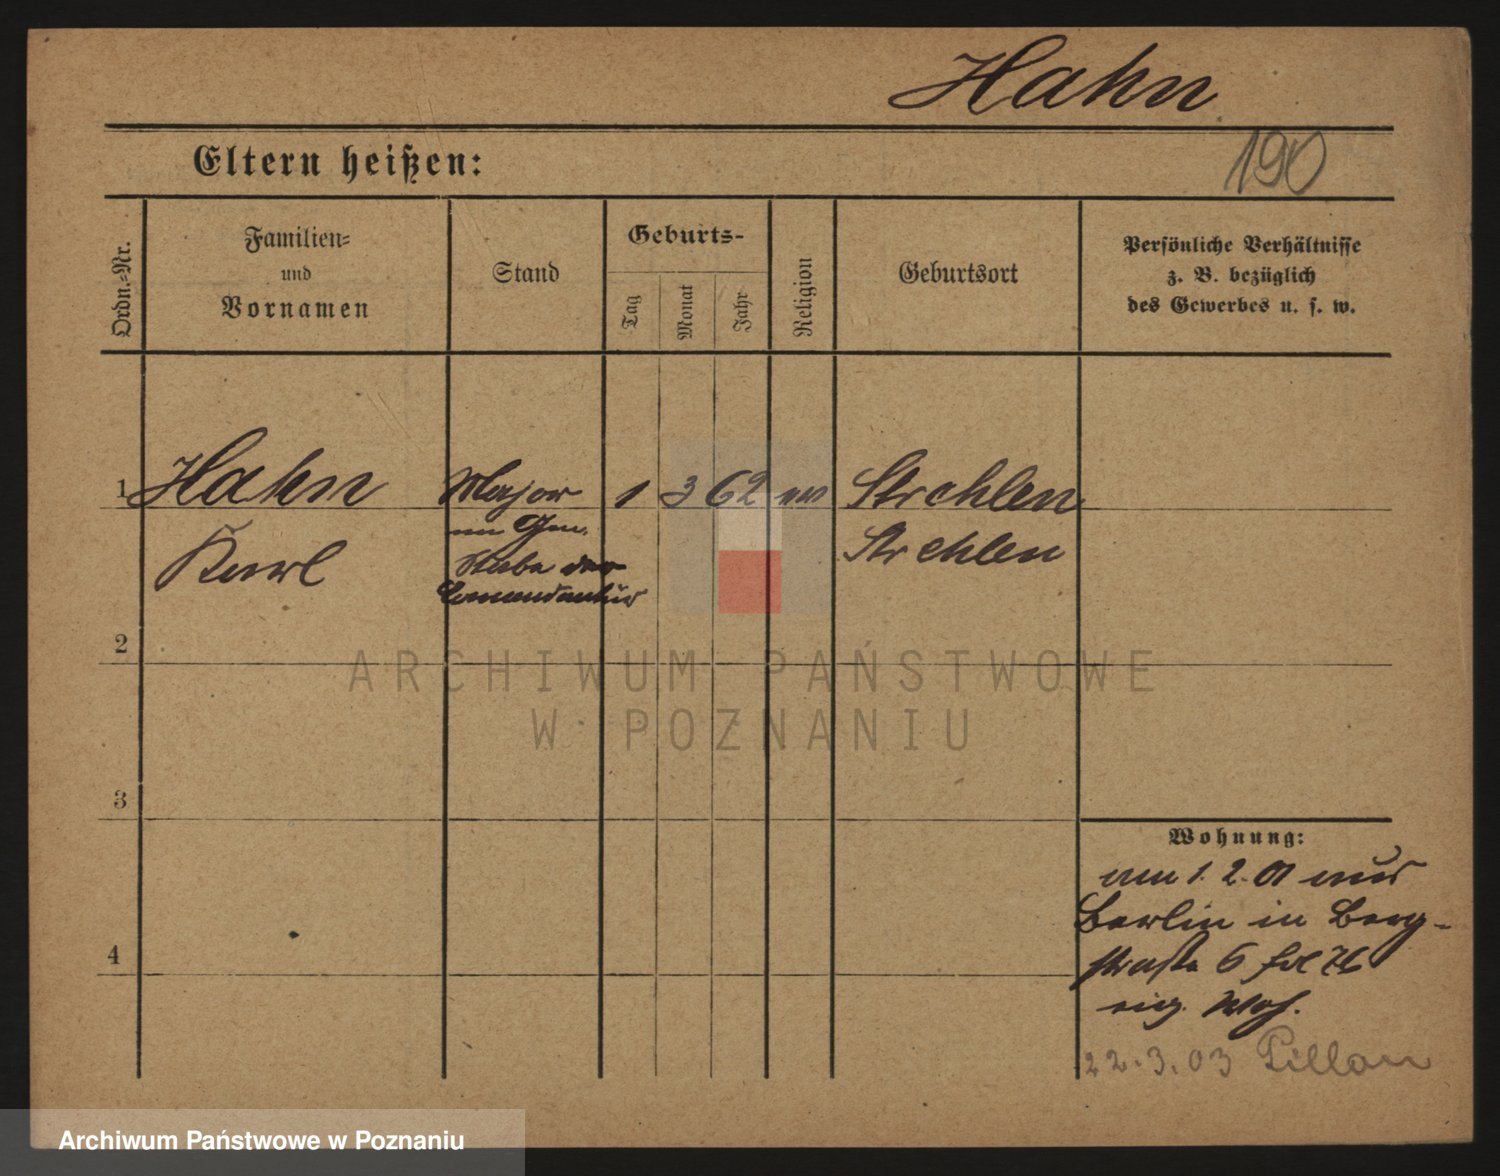 Hahn
190
Eltern heißen:
Ordn.-Nr.
Familien-
und
Vornamen
Stand
Geburts-
Tag
Monat
Jahr
Religion
Geburtsort
Persönliche Verhältnisse
z. B. bezüglich
des Gewerbes u. s. w.
1 Hahn Major 1 3 62 ev Strehlen
im Gen.
Karl Strehlen
Stabe der
Comandantur
2
3
4
Wohnung:
am 1. 2. 01 aus
Berlin in Berg-
straße 6
eig. Woh.
22.3.03 Pillau
ARCHIWUM PAŃSTWOWE
W POZNANIU
Archiwum Państwowe w Poznaniu